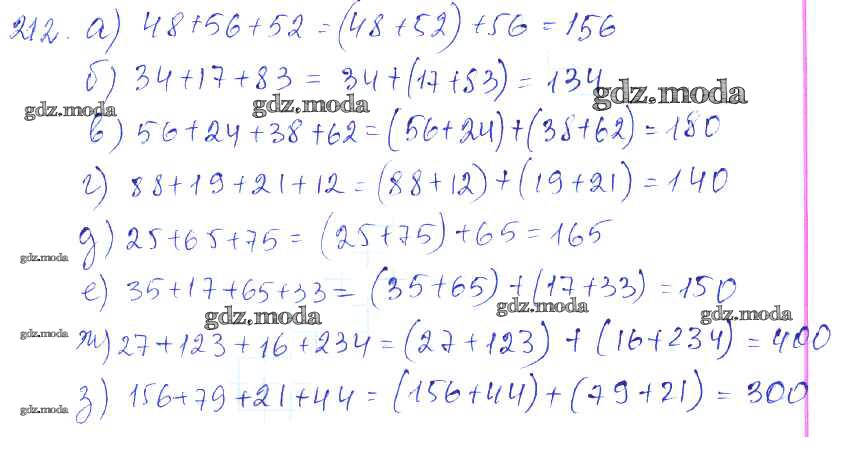 212. а) 48+56+52=(48+52)+56=156
б) 34+17+83=34+(17+83)=134
gdz.moda gdz.moda gdz.moda
в) 56+24+38+62=(56+24)+(38+62)=180
г) 88+19+21+12=(88+12)+(19+21)=140
д) 25+65+75=(25+75)+65=165
gdz.moda
е) 35+17+65+33=(35+65)+(17+33)=150
gdz.moda gdz.moda gdz.moda
gdz.moda
ж) 27+123+16+234=(27+123)+(16+234)=400
з) 156+79+21+44=(156+44)+(79+21)=300
gdz.moda